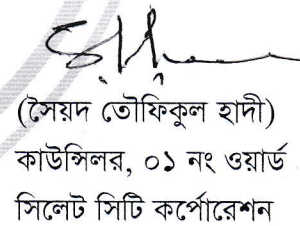 (সৈয়দ তৌফিকুল হাদী)
কাউন্সিলর, ০১ নং ওয়ার্ড
সিলেট সিটি কর্পোরেশন